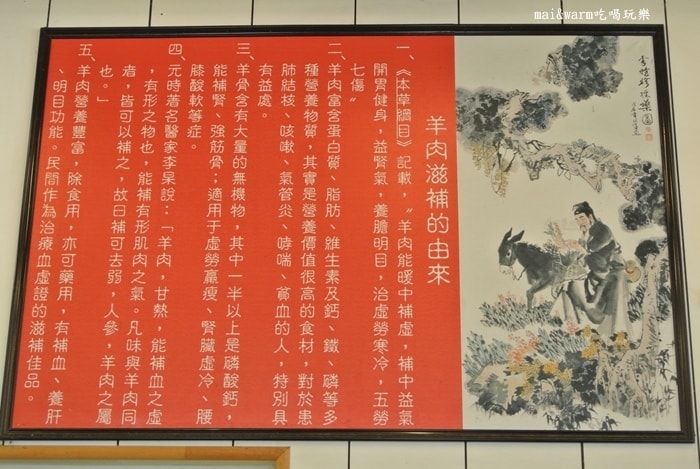 mai&warm吃喝玩樂
羊肉滋補的由來
一、《本草綱目》記載，〝羊肉能暖中補虛，補中益氣
開胃健身，益腎氣，養膽明目，治虛勞寒冷，五勞
七傷〞
二、羊肉富含蛋白質、脂肪、維生素及鈣、鐵、磷等多
種營養物質，其實是營養價值很高的食材，對於患
肺結核、咳嗽、氣管炎、哮喘、貧血的人，特別具
有益處。
三、羊骨含有大量的無機物，其中一半以上是磷酸鈣，
能補腎、強筋骨；適用于虛勞羸瘦、腎臟虛冷、腰
膝酸軟等症。
四、元時著名醫家李杲說：「羊肉，甘熱，能補血之虛
，有形之物也，能補有形肌肉之氣。凡味與羊肉同
者，皆可以補之，故曰補可去弱，人參，羊肉之屬
也。」
五、羊肉營養豐富，除食用，亦可藥用，有補血、養肝
、明目功能。民間作為治療血虛證的滋補佳品。